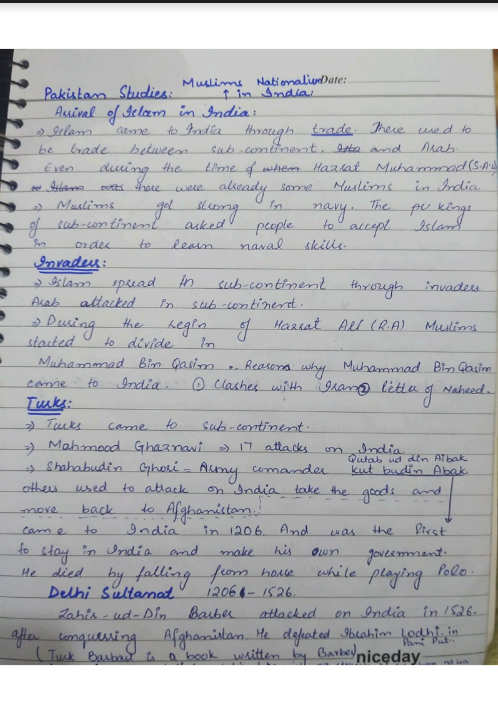 Muslims Nationalism Date:
Pakistan Studies: ↑ in India:
Arrival of Islam in India:
⇒ Islam came to India through trade. There used to
be trade between sub-continent, and Arab.
Even during the time of when Hazrat Muhammad (S.A.W)
there were already some Muslims in India
⇒ Muslims got strong in navy. The kings
of sub-continent asked people to accept Islam
in order to learn naval skills.
Invaders:
⇒ Islam spread in sub-continent through invaders
Arab attacked in sub-continent.
⇒ During the of Hazrat Ali (R.A) Muslims
started to divide in
Muhammad Bin Qasim Reasons why Muhammad Bin Qasim
came to India. ① Clashes with Iran ② letter of Naheed.
Turks:
⇒ Turks came to sub-continent.
⇒ Mahmood Ghaznavi ⇒ 17 attacks on India
Qutab ud din Aibak
⇒ Shahabudin Ghori = Army comander kut budin Abak
others used to attack on India take the goods and
move back to Afghanistan.
came to India in 1206. And was the first
to stay in India and make his own government.
He died by falling from horse while playing Polo.
Delhi Sultanat 1206 - 1526.
Zahir-ud-Din Barber attacked on India in 1526.
after conquering Afghanistan. He defeated Ibrahim Lodhi in
Pani Put.
(Turk Barbari is a book written by Barber)
niceday